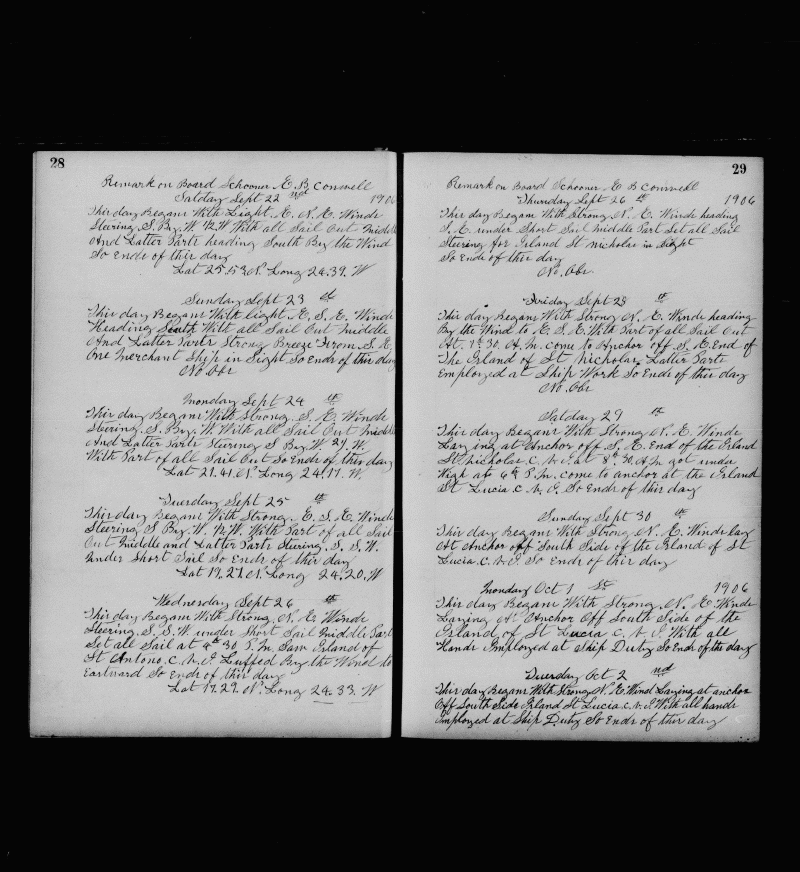 28
Remark on Board Schooner E. B. Conwell
Satday Sept 22 nd 1906
This day Begans With Light. E. N. E. Winds
Steering. S. By. W. 1/2. W With all Sail Out Middle
And Latter Parts heading South By the Wind
So Ends of this day
Lat 25.53 N. Long 24.39. W
Sunday Sept 23
This day Begans With light. E. S. E. Winds
Heading South With all Sail Out Middle
And Latter Parts Strong Breeze From. S. E.
One Merchant Ship in Sight So Ends of this day
No Obs
Monday Sept 24 th
This day Begans With Strong. S. E. Winds
Steering. S. By. W. With all Sail Out Middle
And Latter Parts Steering S By. W W.
With Part of all Sail Out So Ends of this day
Lat 21.41. N. Long 24.17. W.
Tuesday Sept 25 th
This day Begans With Strong. E. S. E. Winds
Steering. S By. W. With Part of all Sail
Out Middle and Latter Parts Steering. S. S. W.
Under Short Sail So Ends of this day
Lat 19.21. N. Long 24.20. W
Wednesday Sept 26 th
This day Begans With Strong. N. E. Winds
Steering. S. S. W. under Short Sail Middle Part
Set all Sail at 4 h 30 P. M. Saw Island of
St Antono. C. V. I. Luffed By the Wind to
Eastward So Ends of this day
Lat 17.29. N. Long 24.33. W
29
Remark on Board Schooner E B Conwell
Thursday Sept 26 th 1906
This day Began With Strong. N. E. Winds heading
S. E. under Short Sail Middle Part Set all Sail
Steering for Island St nicholas in Sight
So Ends of this day
No. Obs.
Friday Sept 28 th
This day Begans With Strong N. E. Winds heading
By the Wind to E. S. E. With Part of all Sail Out
At. 1 h 30. A. M. Come to Anchor off S. E. End of
The Island of St Nicholas Latter Parts
Employed at Ship Work So Ends of this day
No. Obs
Satday 29 th
This day Begans With Strong N. E. Winds
Laying at Anchor off S. E. End of the Island
St Nicholas C. V. I. at 8 h 30 A. M. got under
Weigh at 6 h P. M. Come to anchor at the Island
St Lucia C. V. I. So Ends of this day
Sunday Sept 30 th
This day Begans With Strong N. E. Winds lay
At Anchor off South Side of the Island of St
Lucia. C. V. I. So Ends of this day
Monday Oct 1 St 1906
This day Begans With Strong. N. E. Winds
Laying At Anchor Off South Side of the
Island of St Lucia C. V. I. With all
Hands Imployed at Ship Duty So Ends of the day
Tuesday Oct 2 nd
This day Begans With Strong N. E. Wind Laying at anchor
Off South Side Island St Lucia. C. V. I. With all hands
Imployed at Ship Duty So Ends of this day